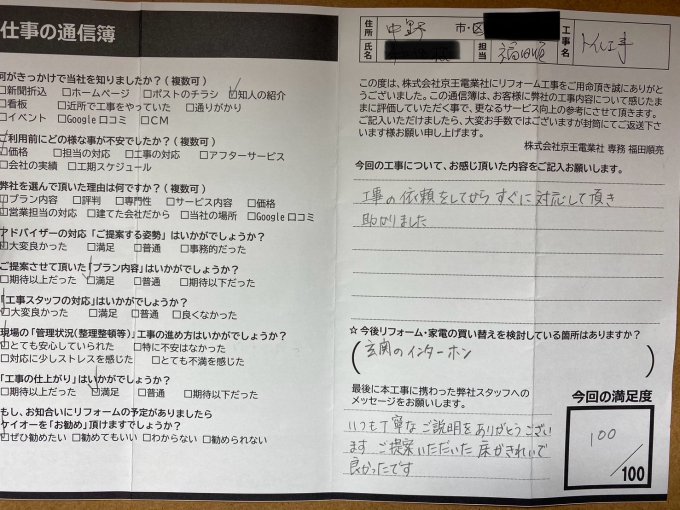 仕事の通信簿
何がきっかけで当社を知りましたか？(複数可)
□新聞折込 □ホームページ □ポストのチラシ ☑知人の紹介
□看板 □近所で工事をやっていた □通りがかり
□イベント □Google口コミ □CM
ご利用前にどの様な事が不安でしたか？(複数可)
□価格 □担当の対応 □工事の対応 □アフターサービス
□会社の実績 □工期スケジュール
弊社を選んで頂いた理由は何ですか？(複数可)
□プラン内容 □評判 □専門性 □サービス内容 □価格
□営業担当の対応 □建てた会社だから □当社の場所 □Google口コミ
アドバイザーの対応「ご提案する姿勢」はいかがでしょうか？
□大変良かった □満足 □普通 □事務的だった
ご提案させて頂いた「プラン内容」はいかがでしょうか？
□期待以上だった ☑満足 □普通 □期待以下だった
「工事スタッフの対応」はいかがでしょうか？
□大変良かった □満足 □普通 □良くなかった
現場の「管理状況(整理整頓等)」工事の進め方はいかがでしょうか？
□とても安心していられた □特に不安はなかった
□対応に少しストレスを感じた □とても不満を感じた
「工事の仕上がり」はいかがでしょうか？
□期待以上だった ☑満足 □普通 □期待以下だった
もし、お知合いにリフォームの予定がありましたら
ケイオーを「お勧め」頂けますでしょうか？
□ぜひ勧めたい □勧めてもいい □わからない □勧められない
住所 中野 市・区
氏名 担当 福田順 工事名 トイレ工事
この度は、株式会社京王電業社にリフォーム工事をご用命頂き誠にありがとうございました。この通信簿は、お客様に弊社の工事内容について感じたま
まに評価していただく事で、更なるサービス向上の参考にさせて頂きます。
ご記入いただけましたら、大変お手数ではございますが封筒にてご返送下さ
います様お願い申し上げます。
株式会社京王電業社 専務 福田順亮
今回の工事について、お感じ頂いた内容をご記入お願いします。
工事の依頼をしてから すぐに対応して頂き
助かりました
☆今後リフォーム・家電の買い替えを検討している箇所はありますか？
(玄関のインターホン)
最後に本工事に携わった弊社スタッフへの
メッセージをお願いします。
いつも丁寧な ご説明を ありがとうござい
ます ご提案いただいた 床がきれいで
良かったです
今回の満足度
100
/100